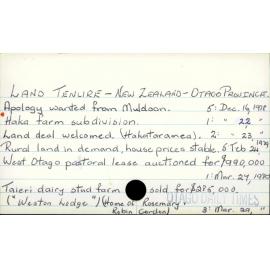 LAND TENURE - NEW ZEALAND - OTAGO PROVINCE.
Apology wanted from Muldoon. 5: Dec. 16, 1978
Haka farm subdivision. 1: " 22, "
Land deal welcomed. (Hakataramea). 2: " 23, "
Rural land in demand, house prices stable. 5 Feb 24, 1979
West Otago pastoral lease auctioned for $990,000
1: Mar. 27, 1979
Taieri dairy stud farm sold for $285,000.
("Weston Lodge") (Home of Rosemary + Robin Gordon) 3: Mar. 29, "
OTAGO DAILY TIMES